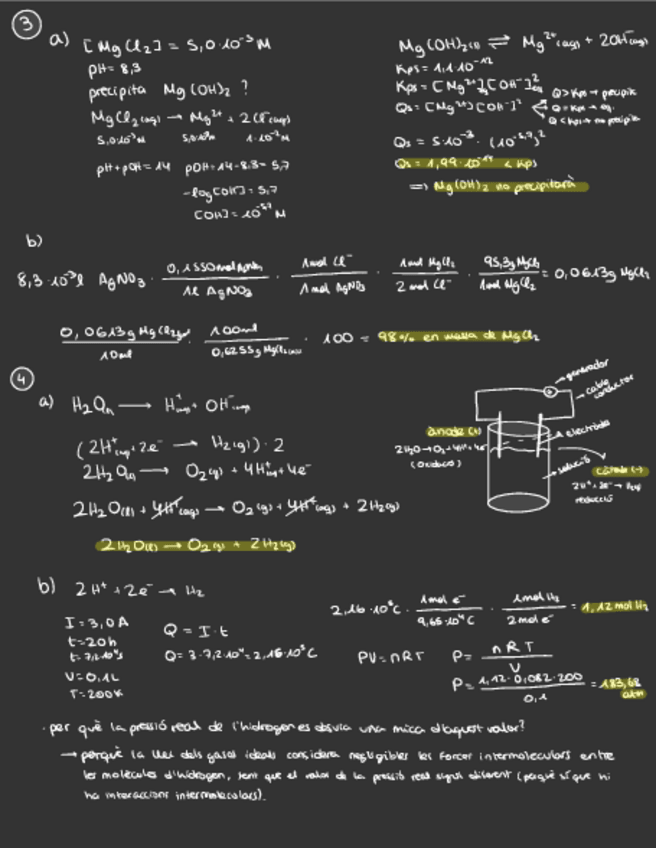 3
a) [MgCl₂] = 5,0·10⁻³ M
pH = 8,3
precipita Mg(OH)₂ ?
MgCl₂(aq) → Mg²⁺ + 2Cl⁻(aq)
5,0·10⁻³M 5,0·10⁻³M 1·10⁻²M
pH + pOH = 14 pOH = 14 - 8,3 = 5,7
-log[OH⁻] = 5,7
[OH⁻] = 10⁻⁵·⁷ M
Mg(OH)₂(s) ⇌ Mg²⁺(aq) + 2OH⁻(aq)
Kps = 1,1·10⁻¹²
Kps = [Mg²⁺][OH⁻]²eq
Qs = [Mg²⁺][OH⁻]²
Q > Kps → precipit
Q = Kps → eq.
Q < Kps → no precipita
Qs = 5·10⁻³ · (10⁻⁵·⁷)²
Qs = 1,99·10⁻¹⁴ < Kps
⇒ Mg(OH)₂ no precipitarà
b)
8,3·10⁻³ l AgNO₃ · 0,1550 mol AgNO₃ / 1l AgNO₃ · 1 mol Cl⁻ / 1 mol AgNO₃ · 1 mol MgCl₂ / 2 mol Cl⁻ · 95,3g MgCl₂ / 1 mol MgCl₂ = 0,0613g MgCl₂
0,0613g MgCl₂ / 10ml · 100ml / 0,6255g MgCl₂ · 100 = 98% en massa de MgCl₂
4
a) H₂O(l) → H⁺(aq) + OH⁻(aq)
(2H⁺(aq) + 2e⁻ → H₂(g)) · 2
2H₂O(l) → O₂(g) + 4H⁺(aq) + 4e⁻
2H₂O(l) + 4H⁺(aq) → O₂(g) + 4H⁺(aq) + 2H₂(g)
2H₂O(l) → O₂(g) + 2H₂(g)
generador
cable conductor
ànode (+)
2H₂O → O₂ + 4H⁺ + 4e⁻
(oxidació)
elèctrode
solució
càtode (-)
2H⁺ + 2e⁻ → H₂(g)
reducció
b) 2H⁺ + 2e⁻ → H₂
I = 3,0 A
t = 20h
t = 7,2·10⁴s
V = 0,1L
T = 200K
Q = I · t
Q = 3 · 7,2·10⁴ = 2,16·10⁵ C
2,16·10⁵ C · 1 mol e⁻ / 9,65·10⁴ C · 1 mol H₂ / 2 mol e⁻ = 1,12 mol H₂
PV = nRT P = nRT / V
P = 1,12 · 0,082 · 200 / 0,1 = 183,68 atm
· per què la pressió real de l'hidrogen es desvia una mica d'aquest valor?
→ perquè la llei dels gasos ideals considera negligibles les forces intermoleculars entre
les molècules d'hidrogen, fent que el valor de la pressió real sigui diferent (perquè sí que hi
ha interaccions intermoleculars).